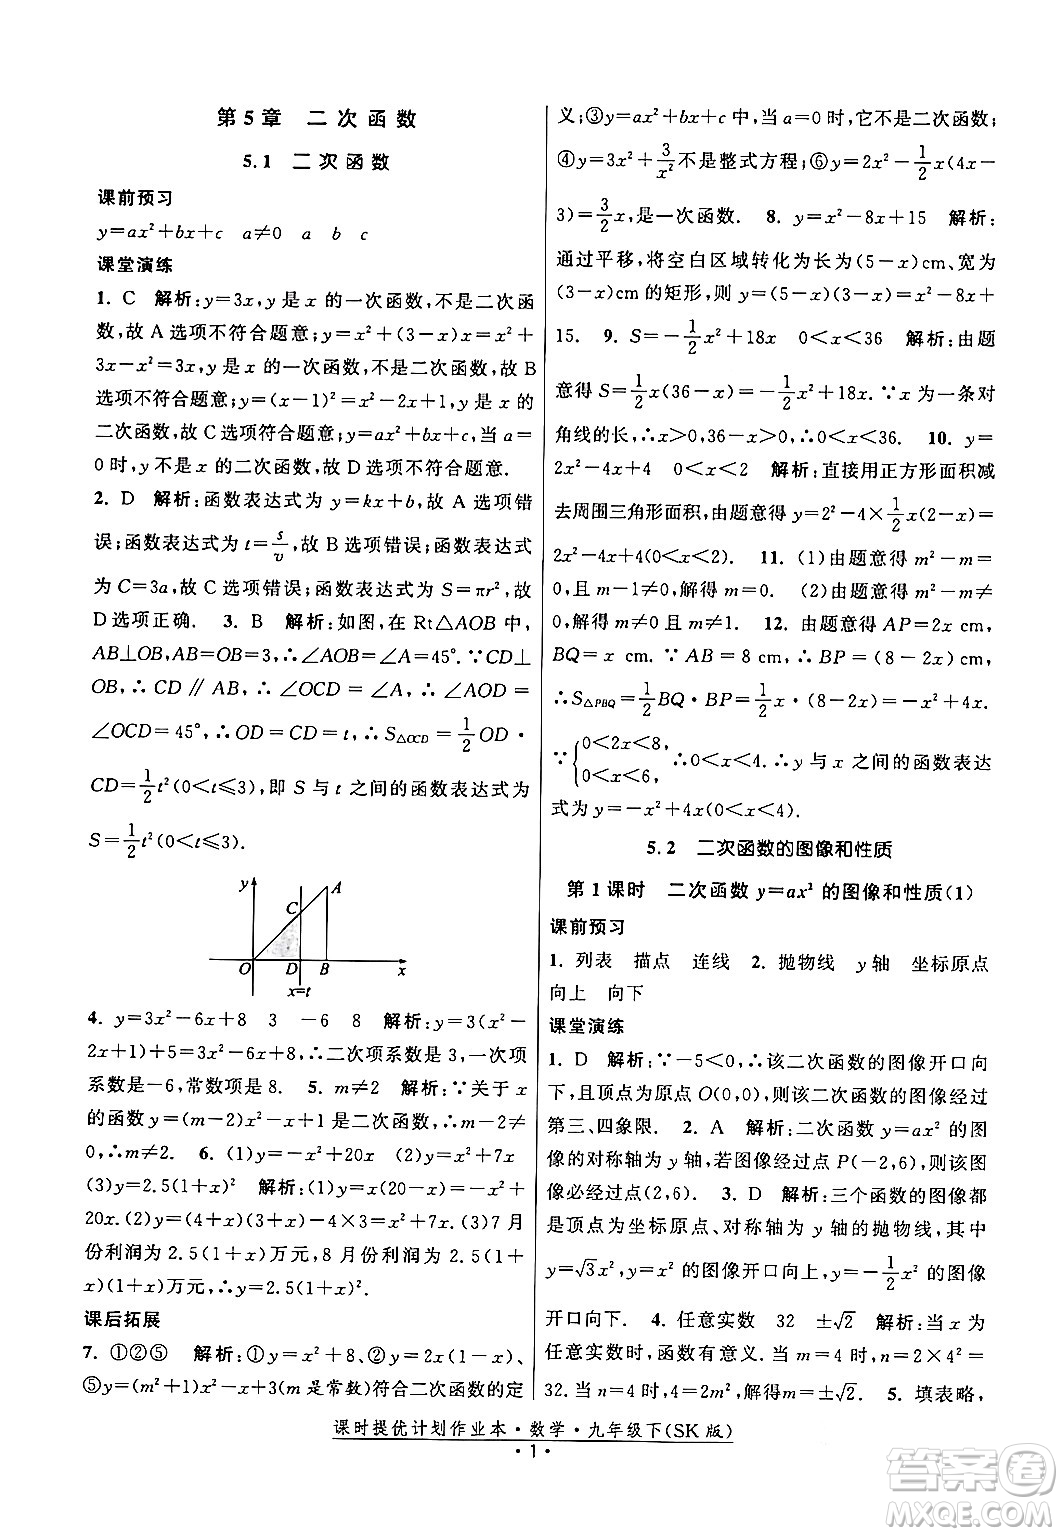 第5章 二次函数
5.1 二次函数
课前预习
y=ax²+bx+c a≠0 a b c
课堂演练
1. C 解析:y=3x,y 是 x 的一次函数,不是二次函
数,故 A 选项不符合题意;y=x²+(3-x)x=x²+
3x-x²=3x,y 是 x 的一次函数,不是二次函数,故 B
选项不符合题意;y=(x-1)²=x²-2x+1,y 是 x 的
二次函数,故 C 选项符合题意;y=ax²+bx+c,当 a=
0 时,y 不是 x 的二次函数,故 D 选项不符合题意.
2. D 解析:函数表达式为 y=kx+b,故 A 选项错
误;函数表达式为 t=s/v,故 B 选项错误;函数表达式
为 C=3a,故 C 选项错误;函数表达式为 S=πr²,故
D 选项正确. 3. B 解析:如图,在 Rt△AOB 中,
AB⊥OB,AB=OB,∴∠AOB=∠A=45°.∵CD⊥
OB,∴CD∥AB,∴∠OCD=∠A,∴∠AOD=
∠OCD=45°,∴OD=CD=t,∴S△OCD=1/2 OD·
CD=1/2 t²(0<t≤3),即 S 与 t 之间的函数表达式为
S=1/2 t²(0<t≤3).
y
A
C
O D B x
x=t
4. y=3x²-6x+8 3 -6 8 解析:y=3(x²-
2x+1)+5=3x²-6x+8,∴二次项系数是3,一次项
系数是-6,常数项是8. 5. m≠2 解析:∵关于 x
的函数 y=(m-2)x²-x+1 是二次函数,∴m-2≠
0,∴m≠2. 6. (1)y=-x²+20x (2)y=12+3x
(3)y=2.5(1+x) 解析:(1)y=x(20-x)=-x²+
20x.(2)y=(4+x)×3=4×3+3x=12+3x.(3)7月
份利润为2.5(1+x)万元,8月份的利润为y=2.5(1+
x)(1+x)万元,∴y=2.5(1+x)².
课后拓展
7. ①②⑤ 解析:①y=x²+8、②y=(x+2)(x-3)、
⑤y=(m²+1)x²+3x-4(m是常数)符合二次函数的定
义;③y=ax²+bx+c 中,当 a=0 时,它不是二次函数;
④y=3x²+3/x²不是整式方程;⑥y=1/2 x²-1/2 x(4x-
3)=3/2 x,是一次函数. 8. y=x²-8x+15 解析:
通过平移,将空白区域转化为长为(5-x)cm、宽为
(3-x)cm 的矩形,则 y=(5-x)(3-x)=x²-8x+
15. 9. S=-1/2 x²+18x 0<x<36 解析:由题
意得 S=1/2 x(36-x)=-1/2 x²+18x.∵x 为一条对
角线的长,∴x>0,36-x>0,∴0<x<36. 10. y=
2x²-4x+4 0<x<2 解析:直接用正方形面积减
去周围三角形面积,由题意得 y=2²-4×1/2 x(2-x)=
2x²-4x+4(0<x<2). 11. (1)由题意得 m²-m=
0,且 m-1≠0,解得 m=0. (2)由题意得 m²-m≠
0,解得 m≠0 且 m≠1. 12. 由题意得 AP=2x cm,
BQ=x cm.∵AB=8 cm,∴BP=(8-2x)cm,
∴S△PBQ=1/2 BQ·BP=1/2 x·(8-2x)=-x²+4x.
∵{0<2x<8, 0<x<6, ∴0<x<4.∴y 与 x 之间的函数表达
式为 y=-x²+4x(0<x<4).
5.2 二次函数的图像和性质
第1课时 二次函数 y=ax² 的图像和性质(1)
课前预习
1. 列表 描点 连线 2. 抛物线 y 轴 坐标原点
向上 向下
课堂演练
1. D 解析:∵-5<0,∴该二次函数的图像开口向
下,且顶点为原点 O(0,0),则该二次函数的图像经过
第三、四象限. 2. A 解析:二次函数 y=ax² 的图
像的对称轴为 y 轴,若图像经过点 P(-2,6),则该图
像必经过点(2,6). 3. D 解析:三个函数的图像都
是顶点为坐标原点、对称轴为 y 轴的抛物线,其中
y=√3x²,y=x² 的图像开口向上,y=-1/2 x² 的图像
开口向下. 4. 任意实数 32 ±√2 解析:当 x 为
任意实数时,函数有意义.当 m=4 时,n=2×4²=
32.当 n=4 时,4=2m²,解得m=±√2. 5. 填表略,
课时提优计划作业本·数学·九年级下(SK版)
·1·
答案圈
MXQE.COM